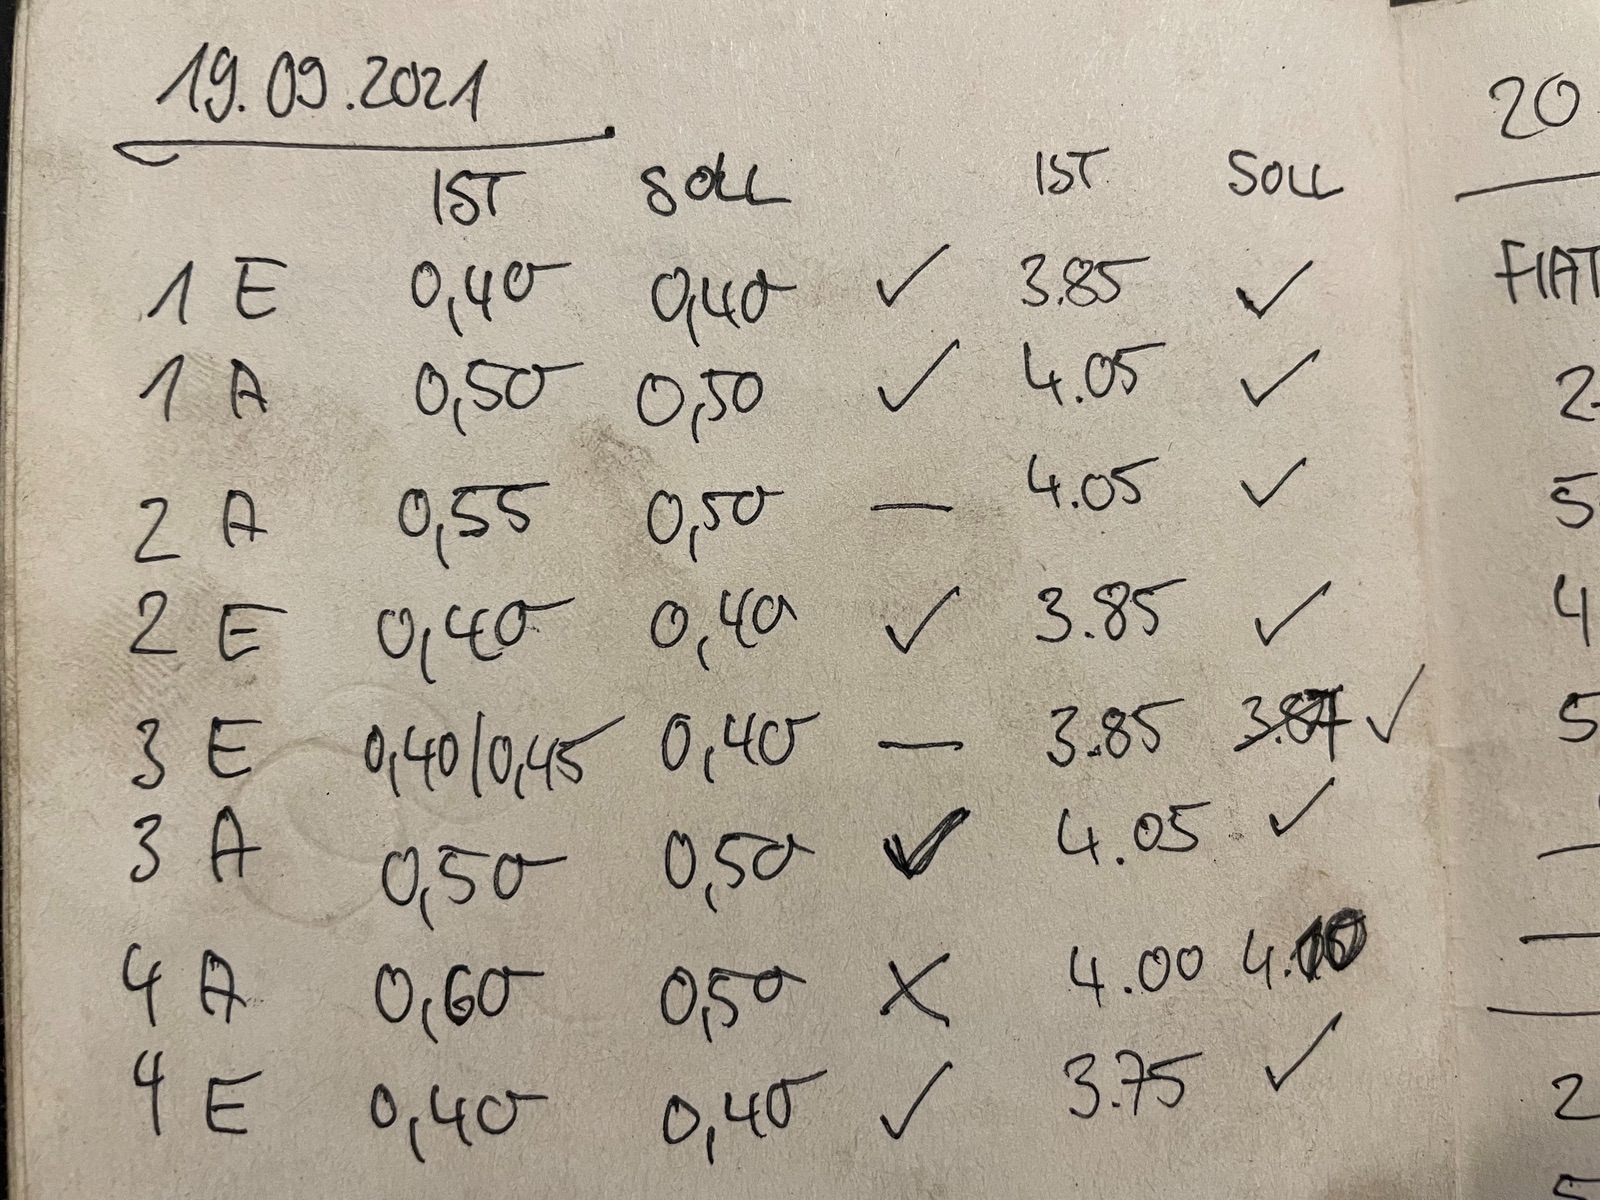 19.09.2021
IST SOLL IST SOLL
1 E 0,40 0,40 ✓ 3.85 ✓
1 A 0,50 0,50 ✓ 4.05 ✓
2 A 0,55 0,50 — 4.05 ✓
2 E 0,40 0,40 ✓ 3.85 ✓
3 E 0,40/0,45 0,40 — 3.85 ✓
3 A 0,50 0,50 ✓ 4.05 ✓
4 A 0,60 0,50 X 4.00 4.10
4 E 0,40 0,40 ✓ 3.75 ✓
20
FIAT
2
5
4
5
2